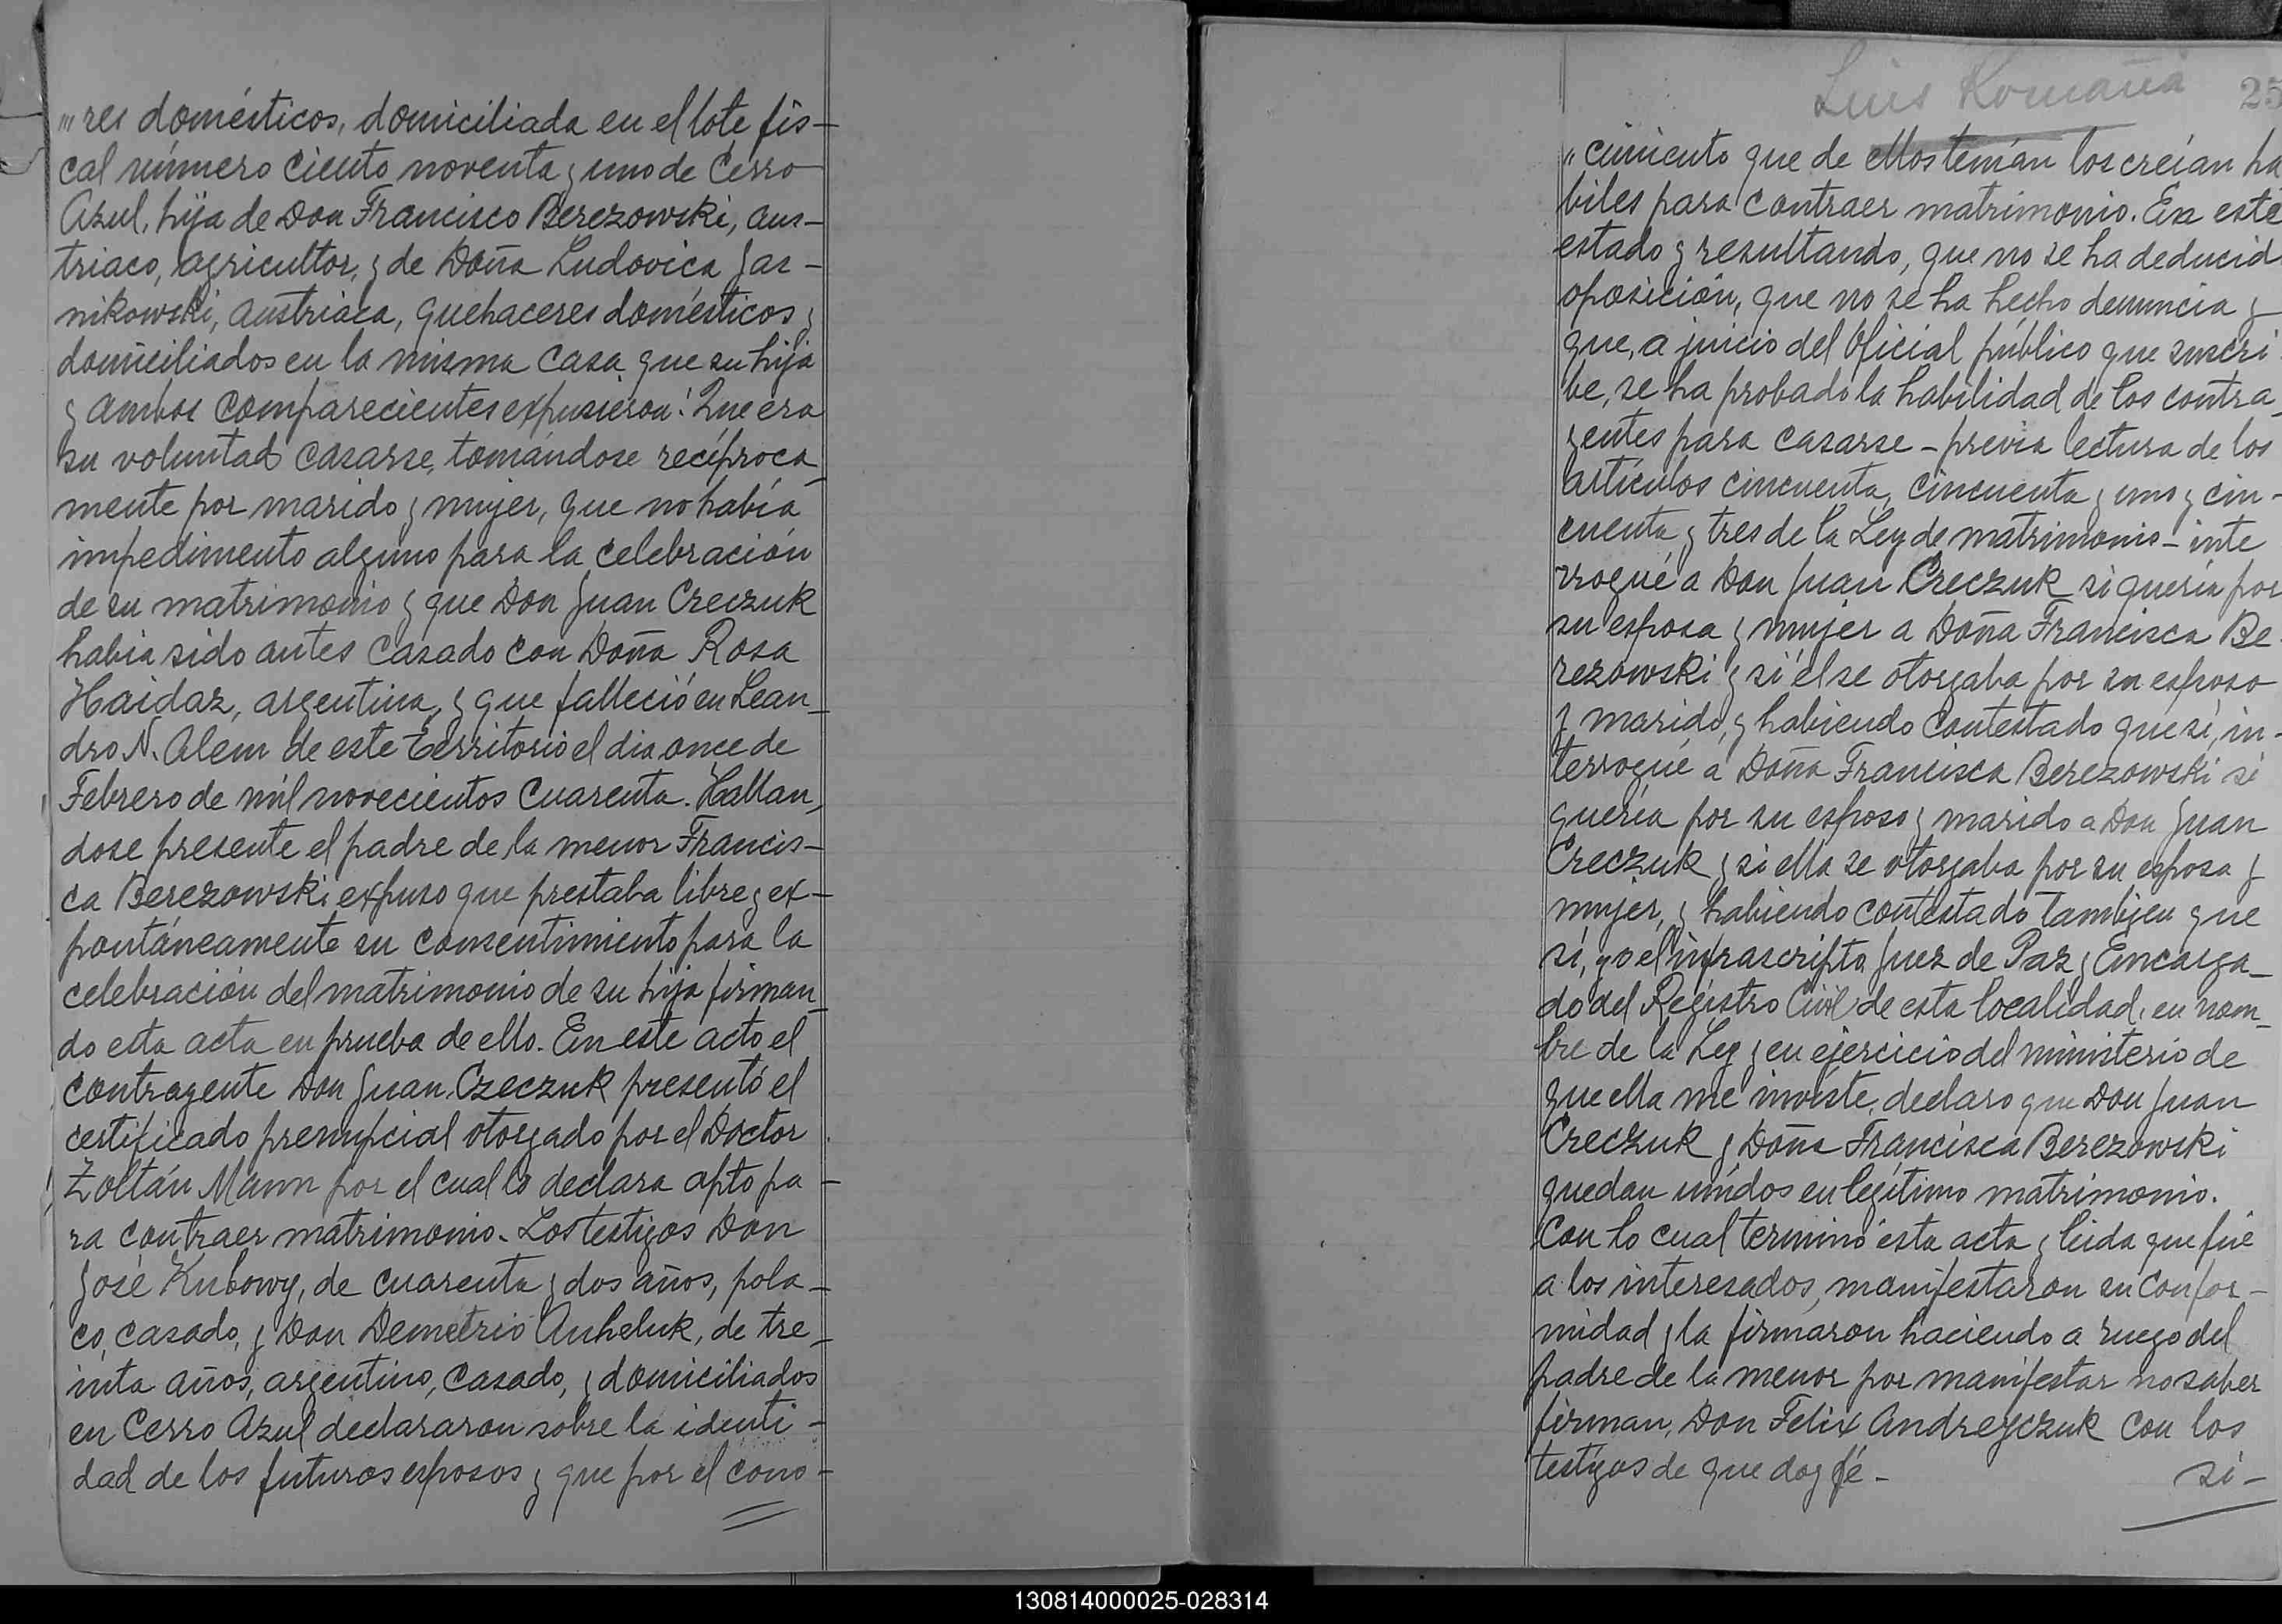 "' res domésticos, domiciliada en el lote fis-
cal número ciento noventa y uno de Cerro
Azul, hija de Don Francisco Berezowski, aus-
triaco, agricultor, y de Doña Ludovica Jas-
nikowski, austriaca, quehaceres domésticos y
domiciliados en la misma casa que su hija
y ambos comparecientes expusieron: Que era
su voluntad casarse, tomándose recíproca_
mente por marido y mujer, que no había
impedimento alguno para la celebración
de su matrimonio y que Don Juan Creczuk
habia sido antes casado con Doña Rosa
Haidaz, argentina, y que falleció en Lean_
dro N. Alem de este Territorio el dia once de
Febrero de mil novecientos cuarenta. Hallan_
dose presente el padre de la menor Francis-
ca Berezowski expuso que prestaba libre y ex-
pontáneamente su consentimiento para la
celebración del matrimonio de su hija firman_
do esta acta en prueba de ello. En este acto el
contrayente Don Juan Czeczuk presentó el
certificado prenupcial otorgado por el Doctor
Zoltán Mann por el cual lo declara apto pa-
ra contraer matrimonio. Los testigos Don
José Kubowy, de cuarenta y dos años, pola-
co, casado, y Don Demetrio Anheluk, de tre_
inta años, argentino, casado, y domiciliados
en Cerro Azul declararon sobre la identi-
dad de los futuros esposos y que por el cono-
Luis Romaña 25
" cimiento que de ellos tenían los creían ha
biles para contraer matrimonio. En este
estado y resultando, que no se ha deducid
oposición, que no se ha hecho denuncia y
que, a juicio del Oficial público que suscri
be, se ha probado la habilidad de los contra_
yentes para casarse - previa lectura de los
artículos cincuenta, cincuenta y uno y cin-
cuenta y tres de la Ley de matrimonio - inte
rrogué a Don Juan Creczuk si quería por
su esposa y mujer a Doña Francisca Be
rezowski y si él se otorgaba por su esposo
y marido, y habiendo contestado que sí, in-
terrogué a Doña Francisca Berezowski si
quería por su esposo y marido a Don Juan
Creczuk y si ella se otorgaba por su esposa y
mujer, y habiendo contestado tambien que
sí, yo el infrascripto Juez de Paz y Encarga_
do del Registro Civil de esta localidad, en nom_
bre de la Ley y en ejercicio del ministerio de
que ella me inviste, declaro que Don Juan
Creczuk y Doña Francisca Berezowski
quedan unidos en legítimo matrimonio.
Con lo cual terminó esta acta y leida que fué
a los interesados, manifestaron su confor-
midad y la firmaron haciendo a ruego del
padre de la menor por manifestar no saber
firman, Don Felix Andrejczuk con los
testigos de que doy fé- si-
130814000025-028314